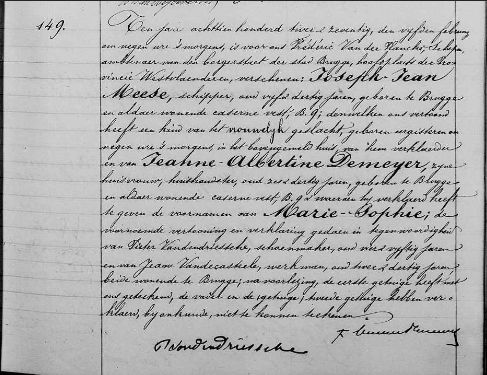 149.
Den jare achttien honderd twee en zeventig, den vyfden february
en negen ure 's morgens, is voor ons Frédéric Van der Haeghe, Schepen,
van den burgerstaet der stad Brugge, hoofdplaets der Pro-
vincie Westvlaenderen, verschenen: Joseph-Jean
Meese, schipper, oud vyf en dertig jaren, geboren te Brugge
en aldaer wonende caserne vest, B. 9; denwelken ons vertoond
heeft een kind van het vrouwelyk geslacht, geboren eergisteren
negen ure 's morgens, in het huis, van hem verklaerder
en van Jeanne-Albertine Demeyer, zyne
huisvrouw, oud zes en dertig jaren, geboren te Brugge
en aldaer wonende caserne vest, B. 9 waeraen hy verklaert heeft
te geven de voornamen van Marie-Sophie; de
voornoemde vertooning en verklaring gedaen in tegenwoordigheid
van Pieter Vandendriessche, schoenmaker, oud vyftig jaren
en van Jean Vandecasteele, werkman, oud twee en dertig jaren
beide wonende te Brugge; na voorlezing, de eerste getuige heeft met
ons geteekend, de vader en de tweede getuige hebben ver-
klaerd, by onkunde, niet te kunnen teekenen.
Vandendriessche